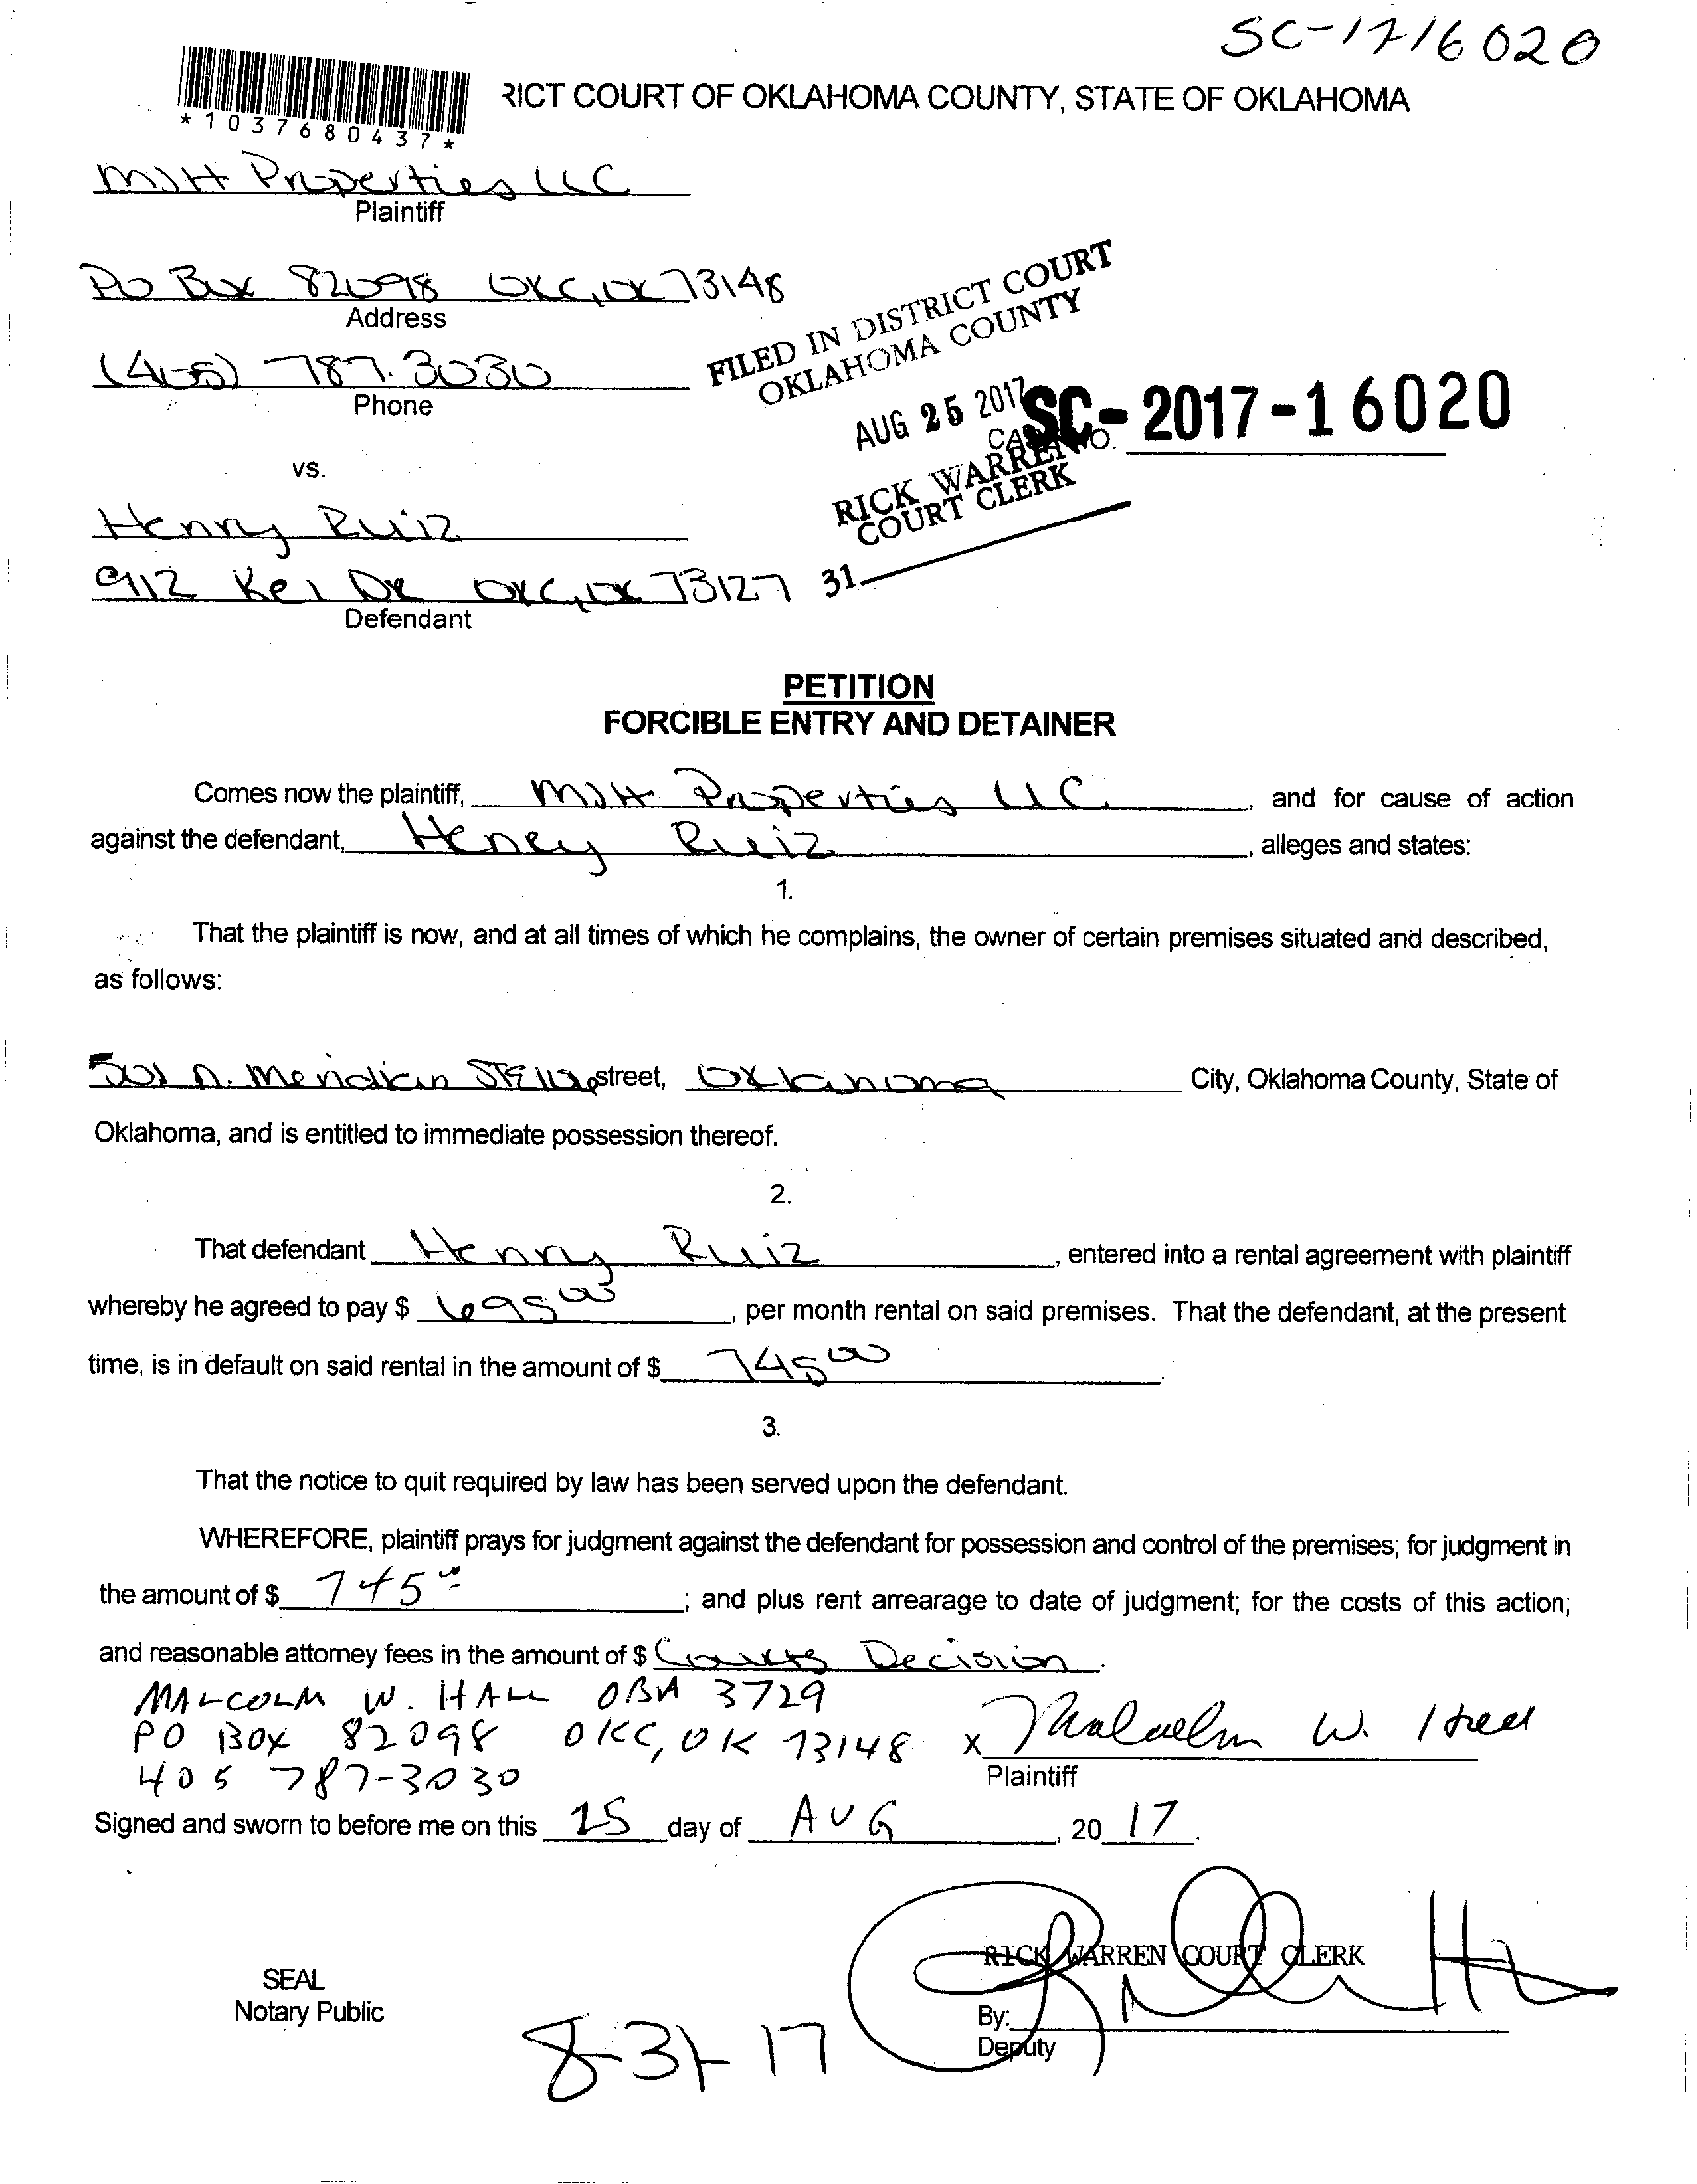 SC-1716020
*1037680437*
RICT COURT OF OKLAHOMA COUNTY, STATE OF OKLAHOMA
MJH Properties LLC
Plaintiff
PO Box 82098 OKC, OK 73148
Address
(405) 787.3030
Phone
FILED IN DISTRICT COURT
OKLAHOMA COUNTY
AUG 25 2017
SC-2017-16020
CASE NO.
RICK WARREN
COURT CLERK
31
vs.
Henry Ruiz
912 Kei Dr OKC, OK 73127
Defendant
PETITION
FORCIBLE ENTRY AND DETAINER
Comes now the plaintiff, MJH Properties LLC, and for cause of action
against the defendant, Henry Ruiz, alleges and states:
1.
That the plaintiff is now, and at all times of which he complains, the owner of certain premises situated and described,
as follows:
501 N. Meridian street, Oklahoma City, Oklahoma County, State of
Oklahoma, and is entitled to immediate possession thereof.
2.
That defendant Henry Ruiz, entered into a rental agreement with plaintiff
whereby he agreed to pay $ 695 00, per month rental on said premises. That the defendant, at the present
time, is in default on said rental in the amount of $ 745 00.
3.
That the notice to quit required by law has been served upon the defendant.
WHEREFORE, plaintiff prays for judgment against the defendant for possession and control of the premises; for judgment in
the amount of $ 745 00; and plus rent arrearage to date of judgment; for the costs of this action;
and reasonable attorney fees in the amount of $ Courts Decision.
MALCOLM W. HALL OBA 3729
PO BOX 82098 OKC, OK 73148 x Malcolm W. Hall
405 787-3030 Plaintiff
Signed and sworn to before me on this 25 day of AUG, 20 17.
RICK WARREN COURT CLERK
SEAL
Notary Public
By:
Deputy
8-31-17